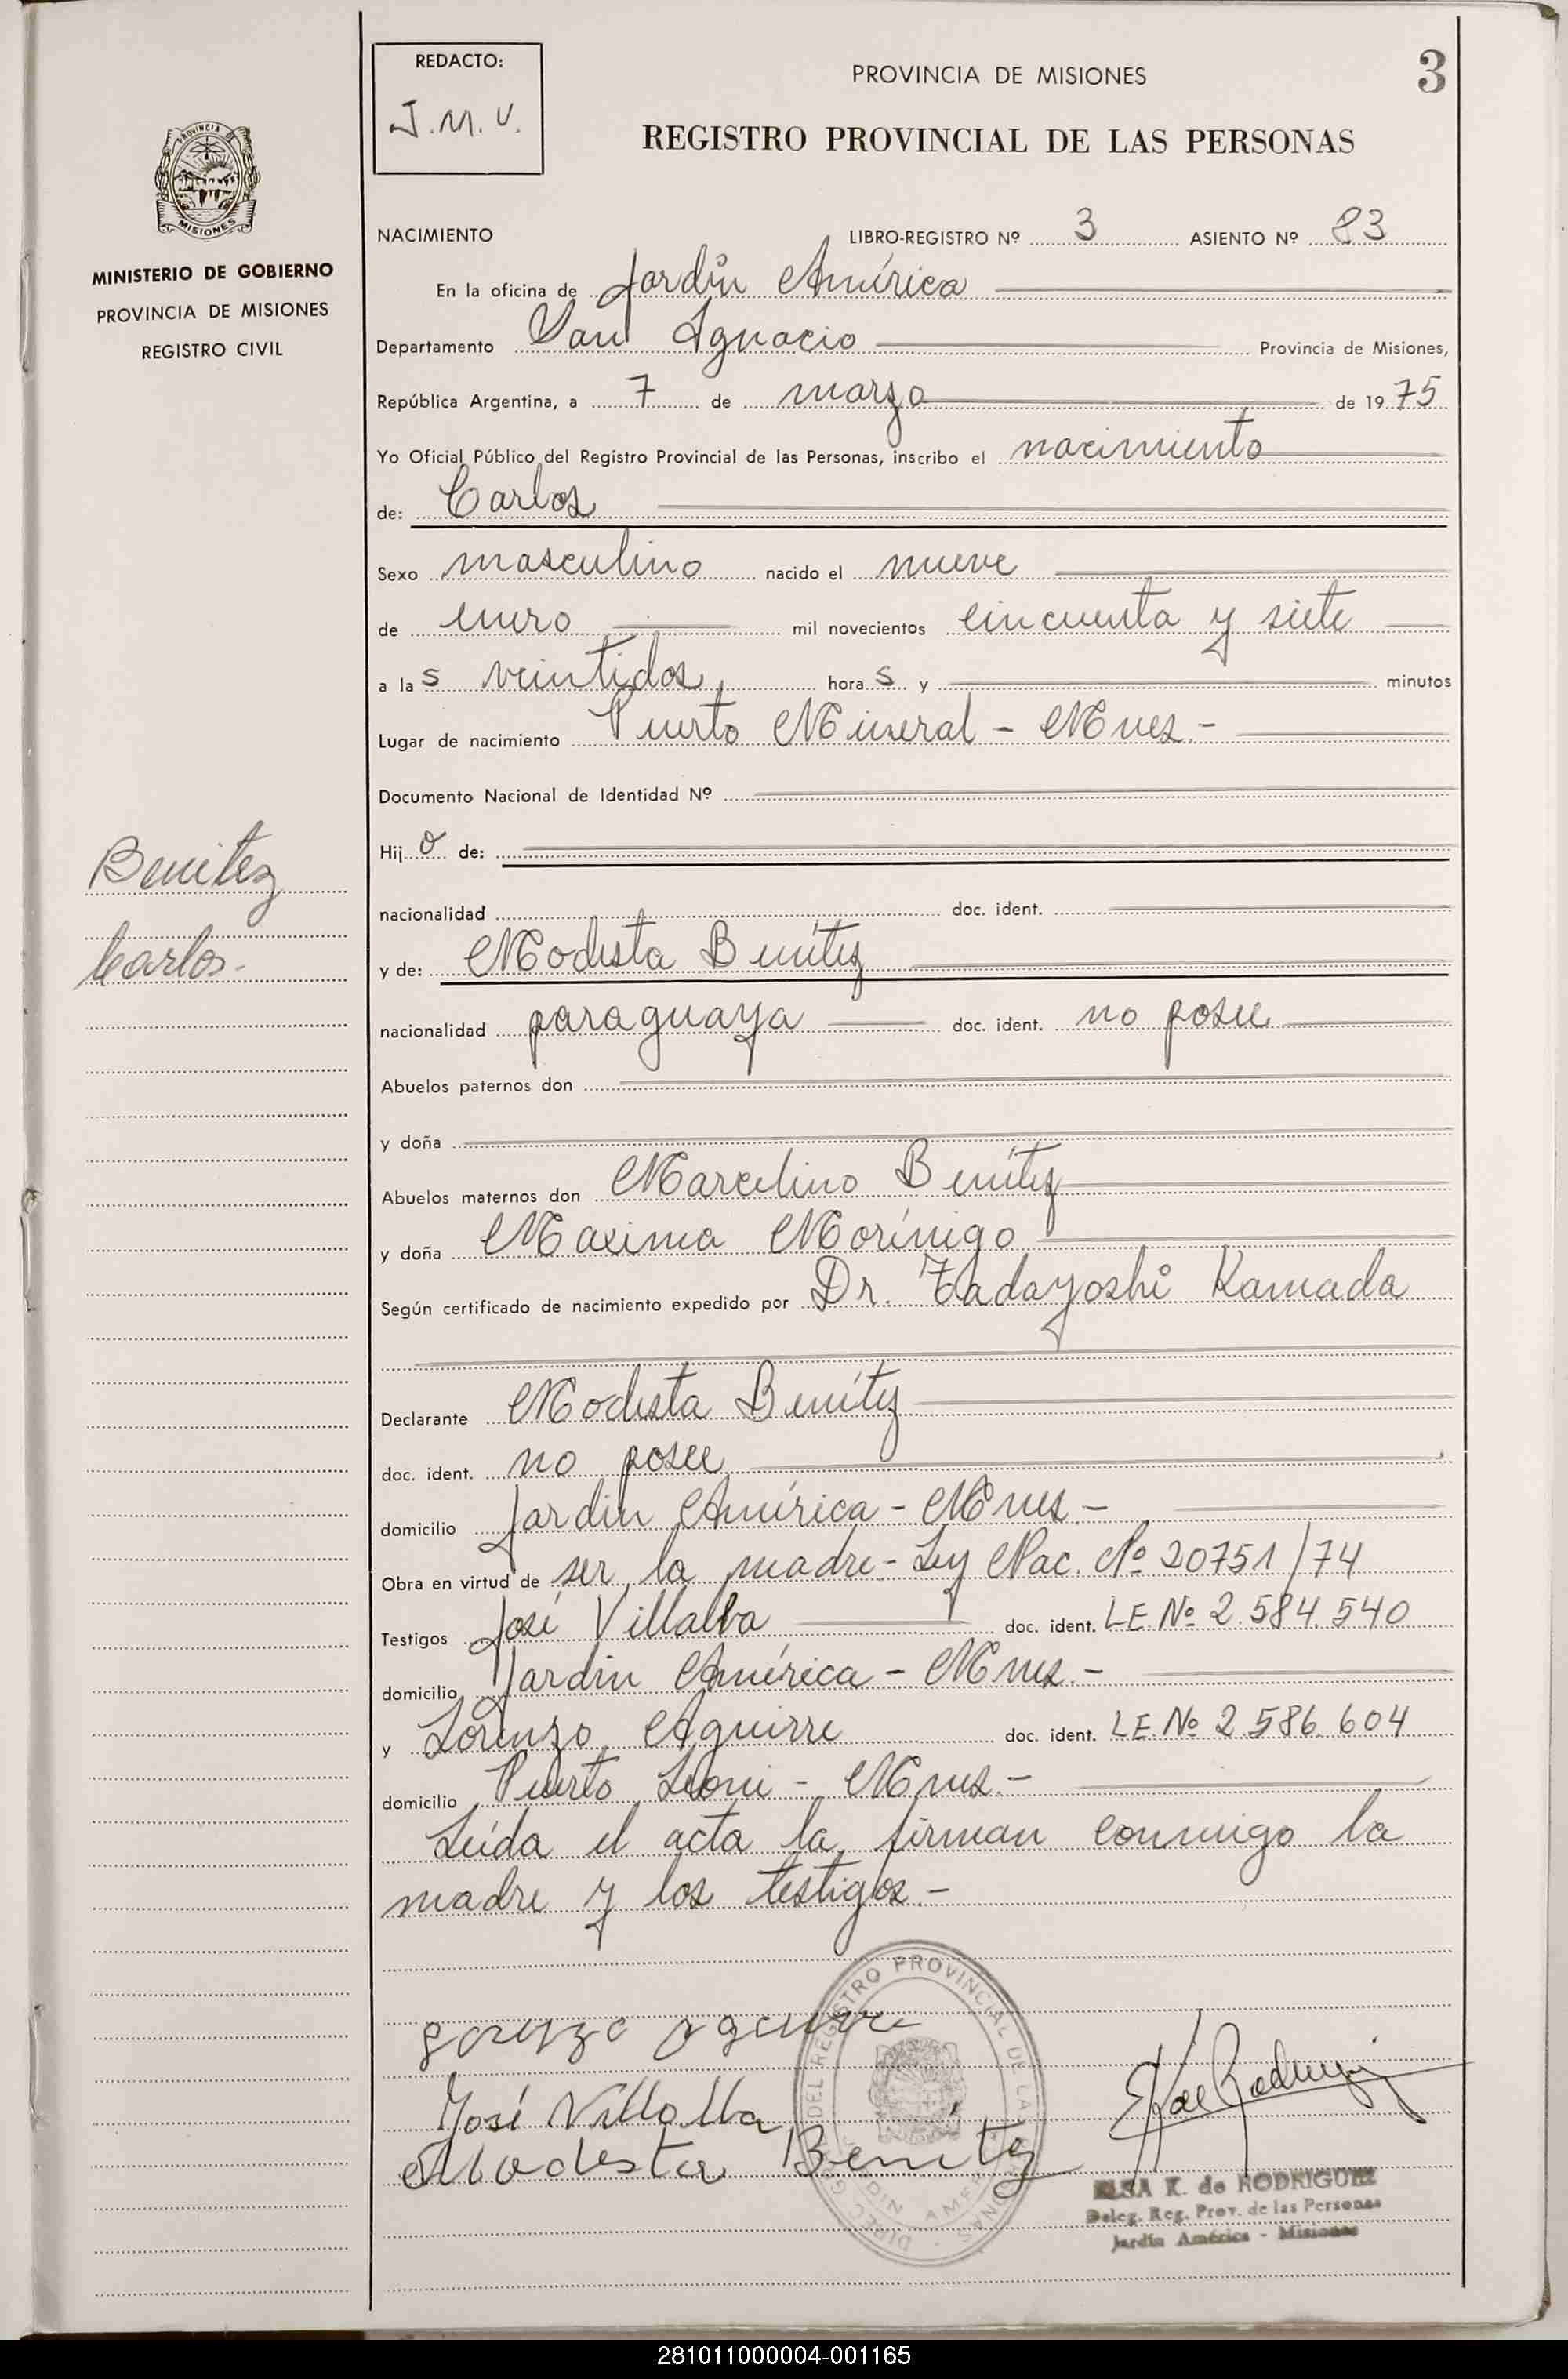 REDACTO:
J.M.V.
PROVINCIA DE MISIONES
3
REGISTRO PROVINCIAL DE LAS PERSONAS
MISIONES
MINISTERIO DE GOBIERNO
PROVINCIA DE MISIONES
REGISTRO CIVIL
NACIMIENTO LIBRO-REGISTRO Nº 3 ASIENTO Nº 83
En la oficina de Jardín América
Departamento San Ignacio Provincia de Misiones,
República Argentina, a 7 de marzo de 1975
Yo Oficial Público del Registro Provincial de las Personas, inscribo el nacimiento
de: Carlos
Sexo masculino nacido el nueve
de enero mil novecientos cincuenta y siete
a las veintidos, horas y minutos
Lugar de nacimiento Puerto Mineral - Mnes.-
Documento Nacional de Identidad Nº
Hijo de:
Benitez
Carlos.-
nacionalidad doc. ident.
y de: Modesta Benítez
nacionalidad paraguaya doc. ident. no posee
Abuelos paternos don
y doña
Abuelos maternos don Marcelino Benítez
y doña Maxima Morínigo
Según certificado de nacimiento expedido por Dr. Tadayoshi Kamada
Declarante Modesta Benítez
doc. ident. no posee
domicilio Jardin América - Mnes.-
Obra en virtud de ser la madre - Ley Nac. Nº 20751/74
Testigos José Villalba doc. ident. LE.Nº 2.584.540
domicilio Jardin América - Mnes.-
y Lorenzo Aguirre doc. ident. LE.Nº 2.586.604
domicilio Puerto Leoni - Mnes.-
Leída el acta la firman conmigo la
madre y los testigos.-
Lorenzo Aguirre
José Villalba
Modesta Benítez
DIREC. GRAL. DEL REGISTRO PROVINCIAL DE LAS PERSONAS
JARDIN AMERICA
ELSA K. de RODRIGUEZ
Deleg. Reg. Prov. de las Personas
Jardín América - Misiones
281011000004-001165